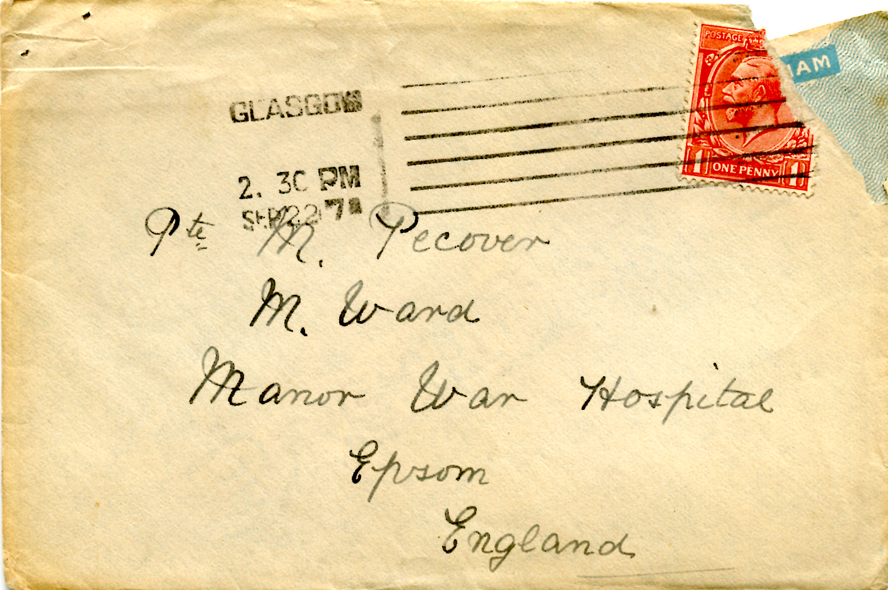 POSTAGE
AM
GLASGOW
2. 30 PM
SEP 22
1 ONE PENNY 1
Pte M. Pecover
M. Ward
Manor War Hospital
Epsom
England